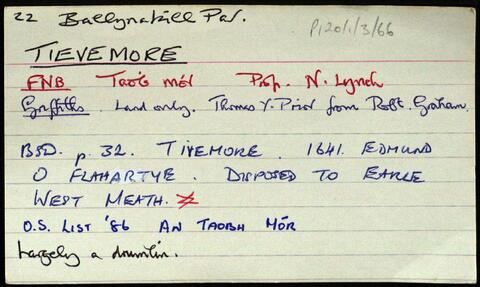 22 Ballynakill Par. P120/1/3/66
TIEVEMORE
FNB Taoḃ mór Prop. N. Lynch
Griffiths. Land only. Thomas Y. Prior from Robt. Graham.
BSD. p. 32. TIVEMORE. 1641. EDMUND
O FLAHARTYE. DISPOSED TO EARLE
WEST MEATH.
O.S. LIST '86 AN TAOBH MÓR
Largely a drumlin.